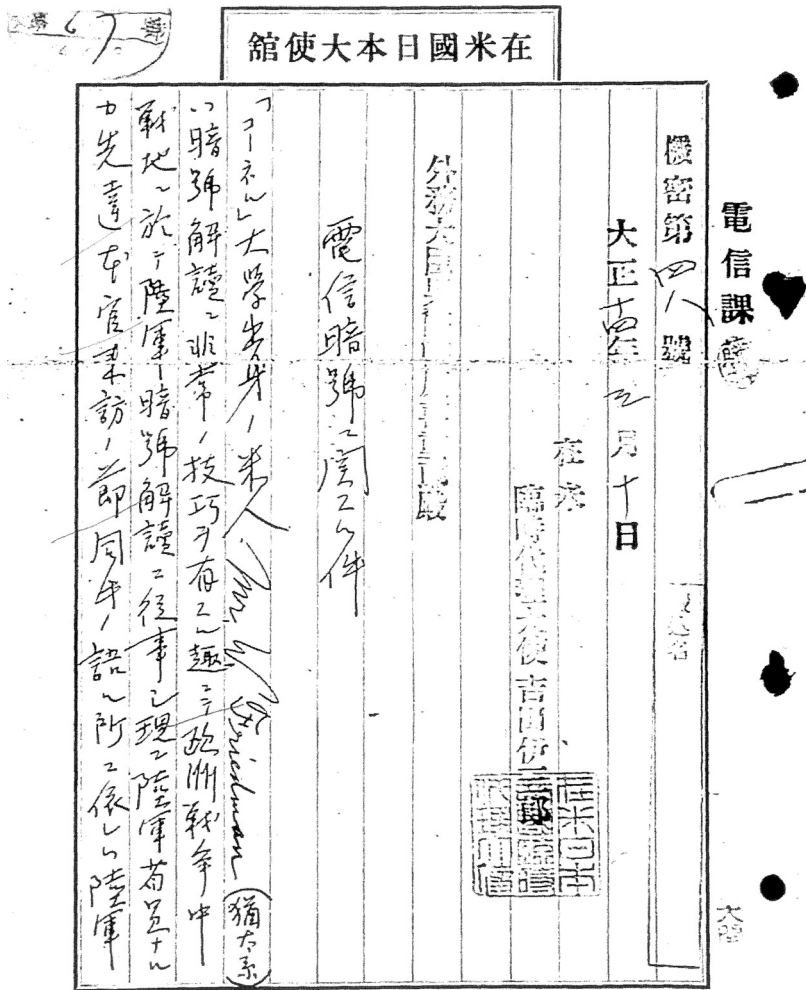 在米國日本大使館
電信課
機密第四八號
大正十四年三月十日
在米
臨時代理大使 吉田伊三郎
外務大臣
電信暗號ニ関スル件
「コーネル」大学出身ノ米人 Mr. W. Friedman (猶太系)
ハ暗號解讀ニ非常ノ技巧ヲ有スル趣ニテ欧洲戦争中
戦地ニ於テ陸軍ノ暗號解讀ニ従事シ現ニ陸軍省員ナル
カ先達本官来訪ノ節同人ノ語ル所ニ依レハ陸軍